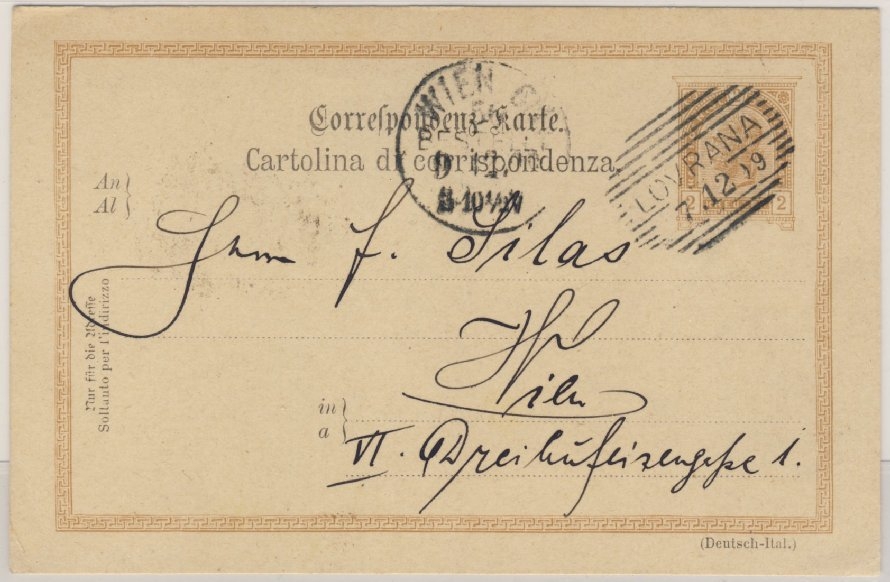 Correspondenz-Karte.
Cartolina di corrispondenza
WIEN
BESTELLT
LOVRANA
7.12.99
2 2
An
Al
Herrn F. Silas
Wien
in
a
VI. Dreihufeisengasse 1.
Nur für die Adresse
Soltanto per l'indirizzo
(Deutsch-Ital.)